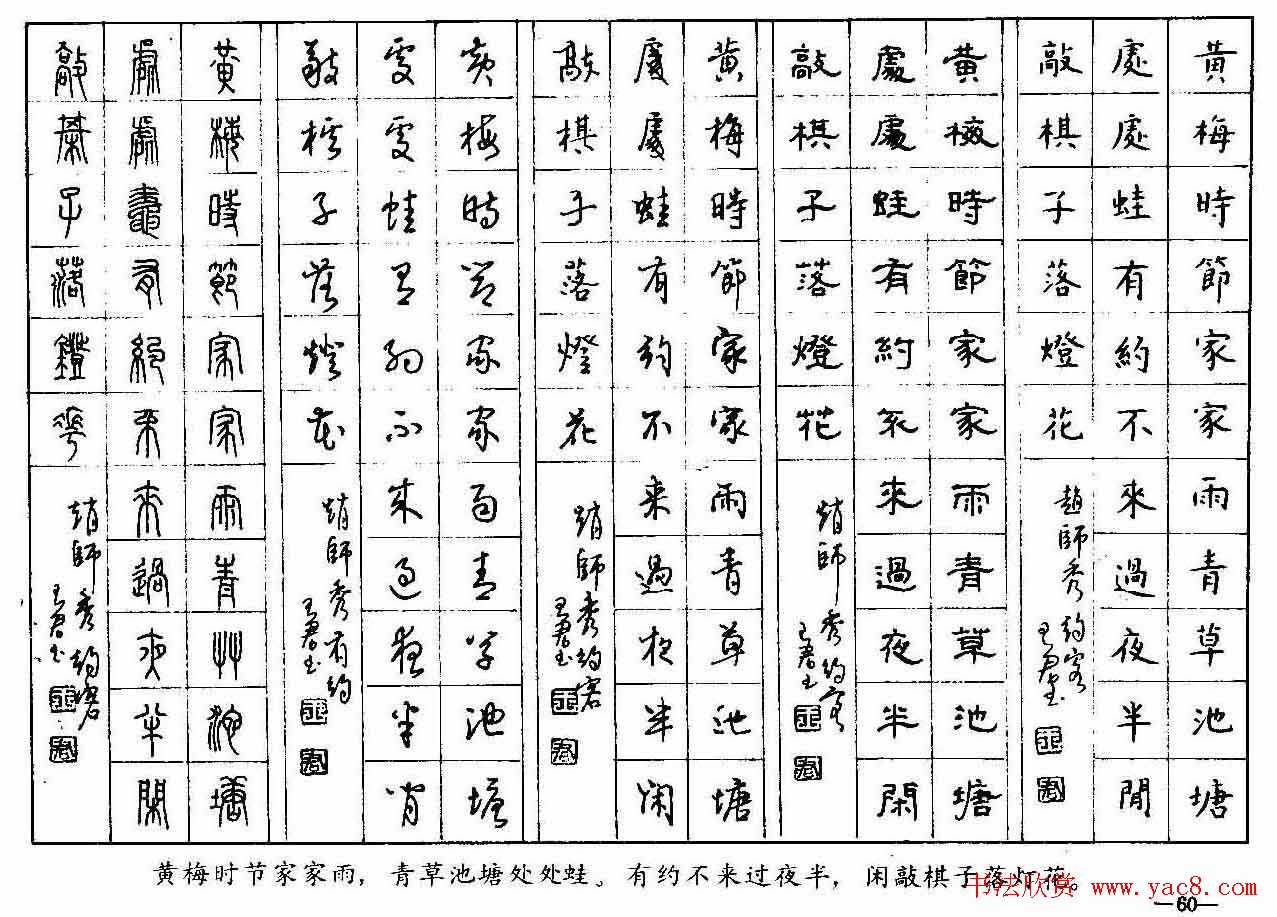 黃梅時節家家雨青草池塘
處處蛙有約不來過夜半閒
敲棋子落燈花
趙師秀約客
黃梅時節家家雨青草池塘
處處蛙有約不來過夜半閑
敲棋子落燈花
趙師秀約客
黃梅時節家家雨青草池塘
處處蛙有約不来過夜半閑
敲棋子落燈花
趙師秀約客
黃梅時節家家雨青草池塘
處處蛙有約不來過夜半閑
敲棋子落燈花
趙師秀有約
黃梅時節家家雨青艸池塘
處處蛙有約不來過夜半閑
敲棊子落鐙花
趙師秀約客
黄梅时节家家雨，青草池塘处处蛙。有约不来过夜半，闲敲棋子落灯花。
书法欣赏 www.yac8.com
—60—